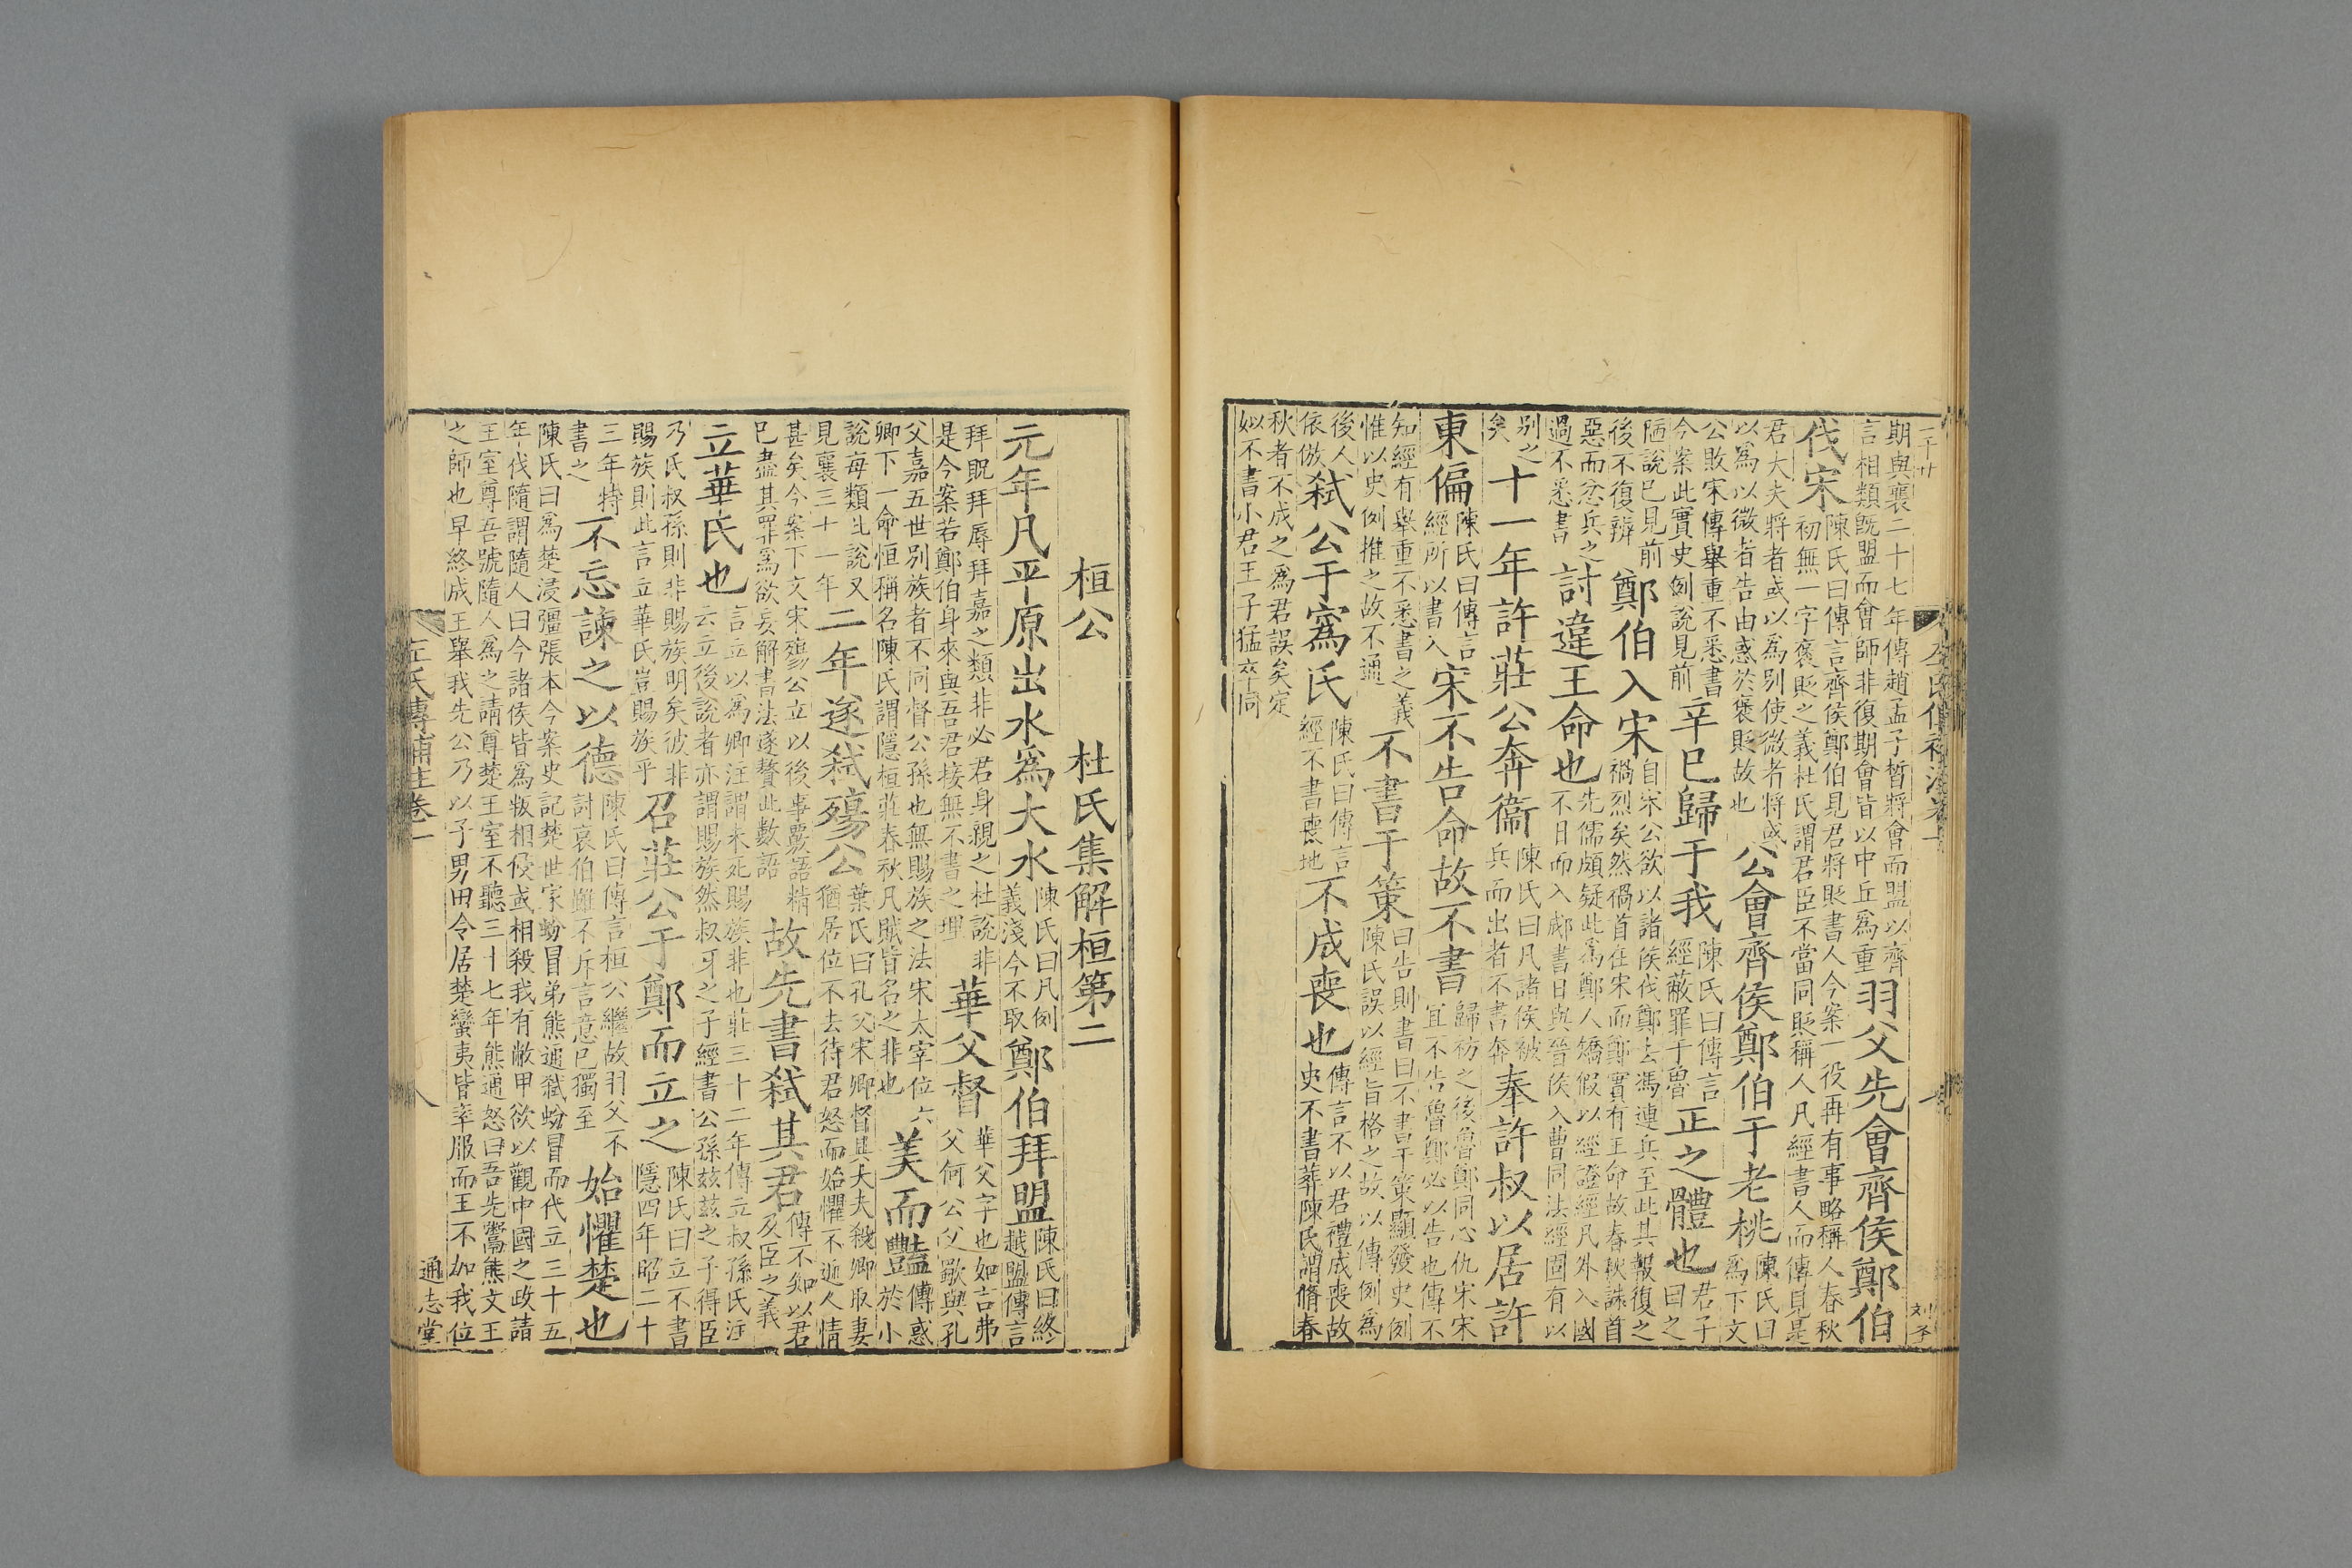 期與襄二十七年傳趙孟子晳將會而盟以齊
言相類旣盟而會師非復期會皆以中丘爲重
羽父先會齊侯鄭伯
伐宋
陳氏曰傳言齊侯鄭伯見君將貶書人今案一役再有事略稱人春秋
初無一字褒貶之義杜氏謂君臣不當同貶稱人凡經書人而傳見是
君大夫將者或以爲別使微者將或
以爲以微者告由惑於褒貶故也
公會齊侯鄭伯于老桃
陳氏曰
爲下文
公敗宋傳舉重不悉書
今案此實史例說見前
辛巳歸于我
陳氏曰傳言
經蔽罪于魯
正之體也
君子
曰之
陋說已見前
後不復辨
鄭伯入宋
自宋公欲以諸侯伐鄭去馮連兵至此其報復之
禍烈矣然禍首在宋而鄭實有王命故春秋誅首
惡而忿兵之
過不悉書
討違王命也
先儒頗疑此爲鄭人矯假以經證經凡外入國
不日而入郕書日與晉侯入曹同法經固有以
别之
矣
十一年許莊公奔衞
陳氏曰凡諸侯被
兵而出者不書奔
奉許叔以居許
東偏
陳氏曰傳言
經所以書入
宋不告命故不書
歸祊之後魯鄭同心仇宋宋
宜不告魯鄭必以告也傳不
知經有舉重不悉書之義
惟以史例推之故不通
不書于策
曰告則書曰不書于策顯發史例
陳氏誤以經旨格之故以傳例爲
後人
依倣
弑公于寪氏
陳氏曰傳言
經不書喪地
不成喪也
傳言不以君禮成喪故
史不書葬陳氏謂脩春
秋者不成之爲君誤矣定
姒不書小君王子猛卒同
桓公
杜氏集解桓第二
元年凡平原出水爲大水
陳氏曰凡例
義淺今不取
鄭伯拜盟
陳氏曰終
越盟傳言
拜貺拜辱拜嘉之類非必君身親之杜說非
是今案若鄭伯身來與吾君接無不書之理
華父督
華父字也如言弗
父何公父歜與孔
父嘉五世别族者不同督公孫也無賜族之法宋太宰位六
卿下一命恒稱名陳氏謂隱桓莊春秋凡賊皆名之非也
美而豔
傳惑
於小
說每類此說又
見襄三十一年
二年遂弑殤公
葉氏曰孔父宋卿督其大夫殺卿取妻
猶居位不去待君怒而始懼不近人情
甚矣今案下文宋殤公立以後事覈語精
已盡其罪爲欲妄解書法遂贅此數語
故先書弑其君
傳不知以君
及臣之義
立華氏也
言立以爲卿注謂未死賜族非也莊三十二年傳立叔孫氏注
云立後說者亦謂賜族然叔牙之子經書公孫茲茲之子得臣
乃氏叔孫則非賜族明矣彼非
賜族則此言立華氏豈賜族乎
召莊公于鄭而立之
陳氏曰立不書
隱四年昭二十
三年特
書之
不忘諫之以德
陳氏曰傳言桓公繼故羽父不
討哀伯雖不斥言意已獨至
始懼楚也
陳氏曰爲楚浸彊張本今案史記楚世家蚡冒弟熊通弑蚡冒而代立三十五
年伐隨謂隨人曰今諸侯皆爲叛相侵或相殺我有敝甲欲以觀中國之政請
王室尊吾號隨人爲之請尊楚王室不聽三十七年熊通怒曰吾先鬻熊文王
之師也早終成王舉我先公乃以子男田令居楚蠻夷皆率服而王不加我位
左氏傳補注卷一
八
通志堂